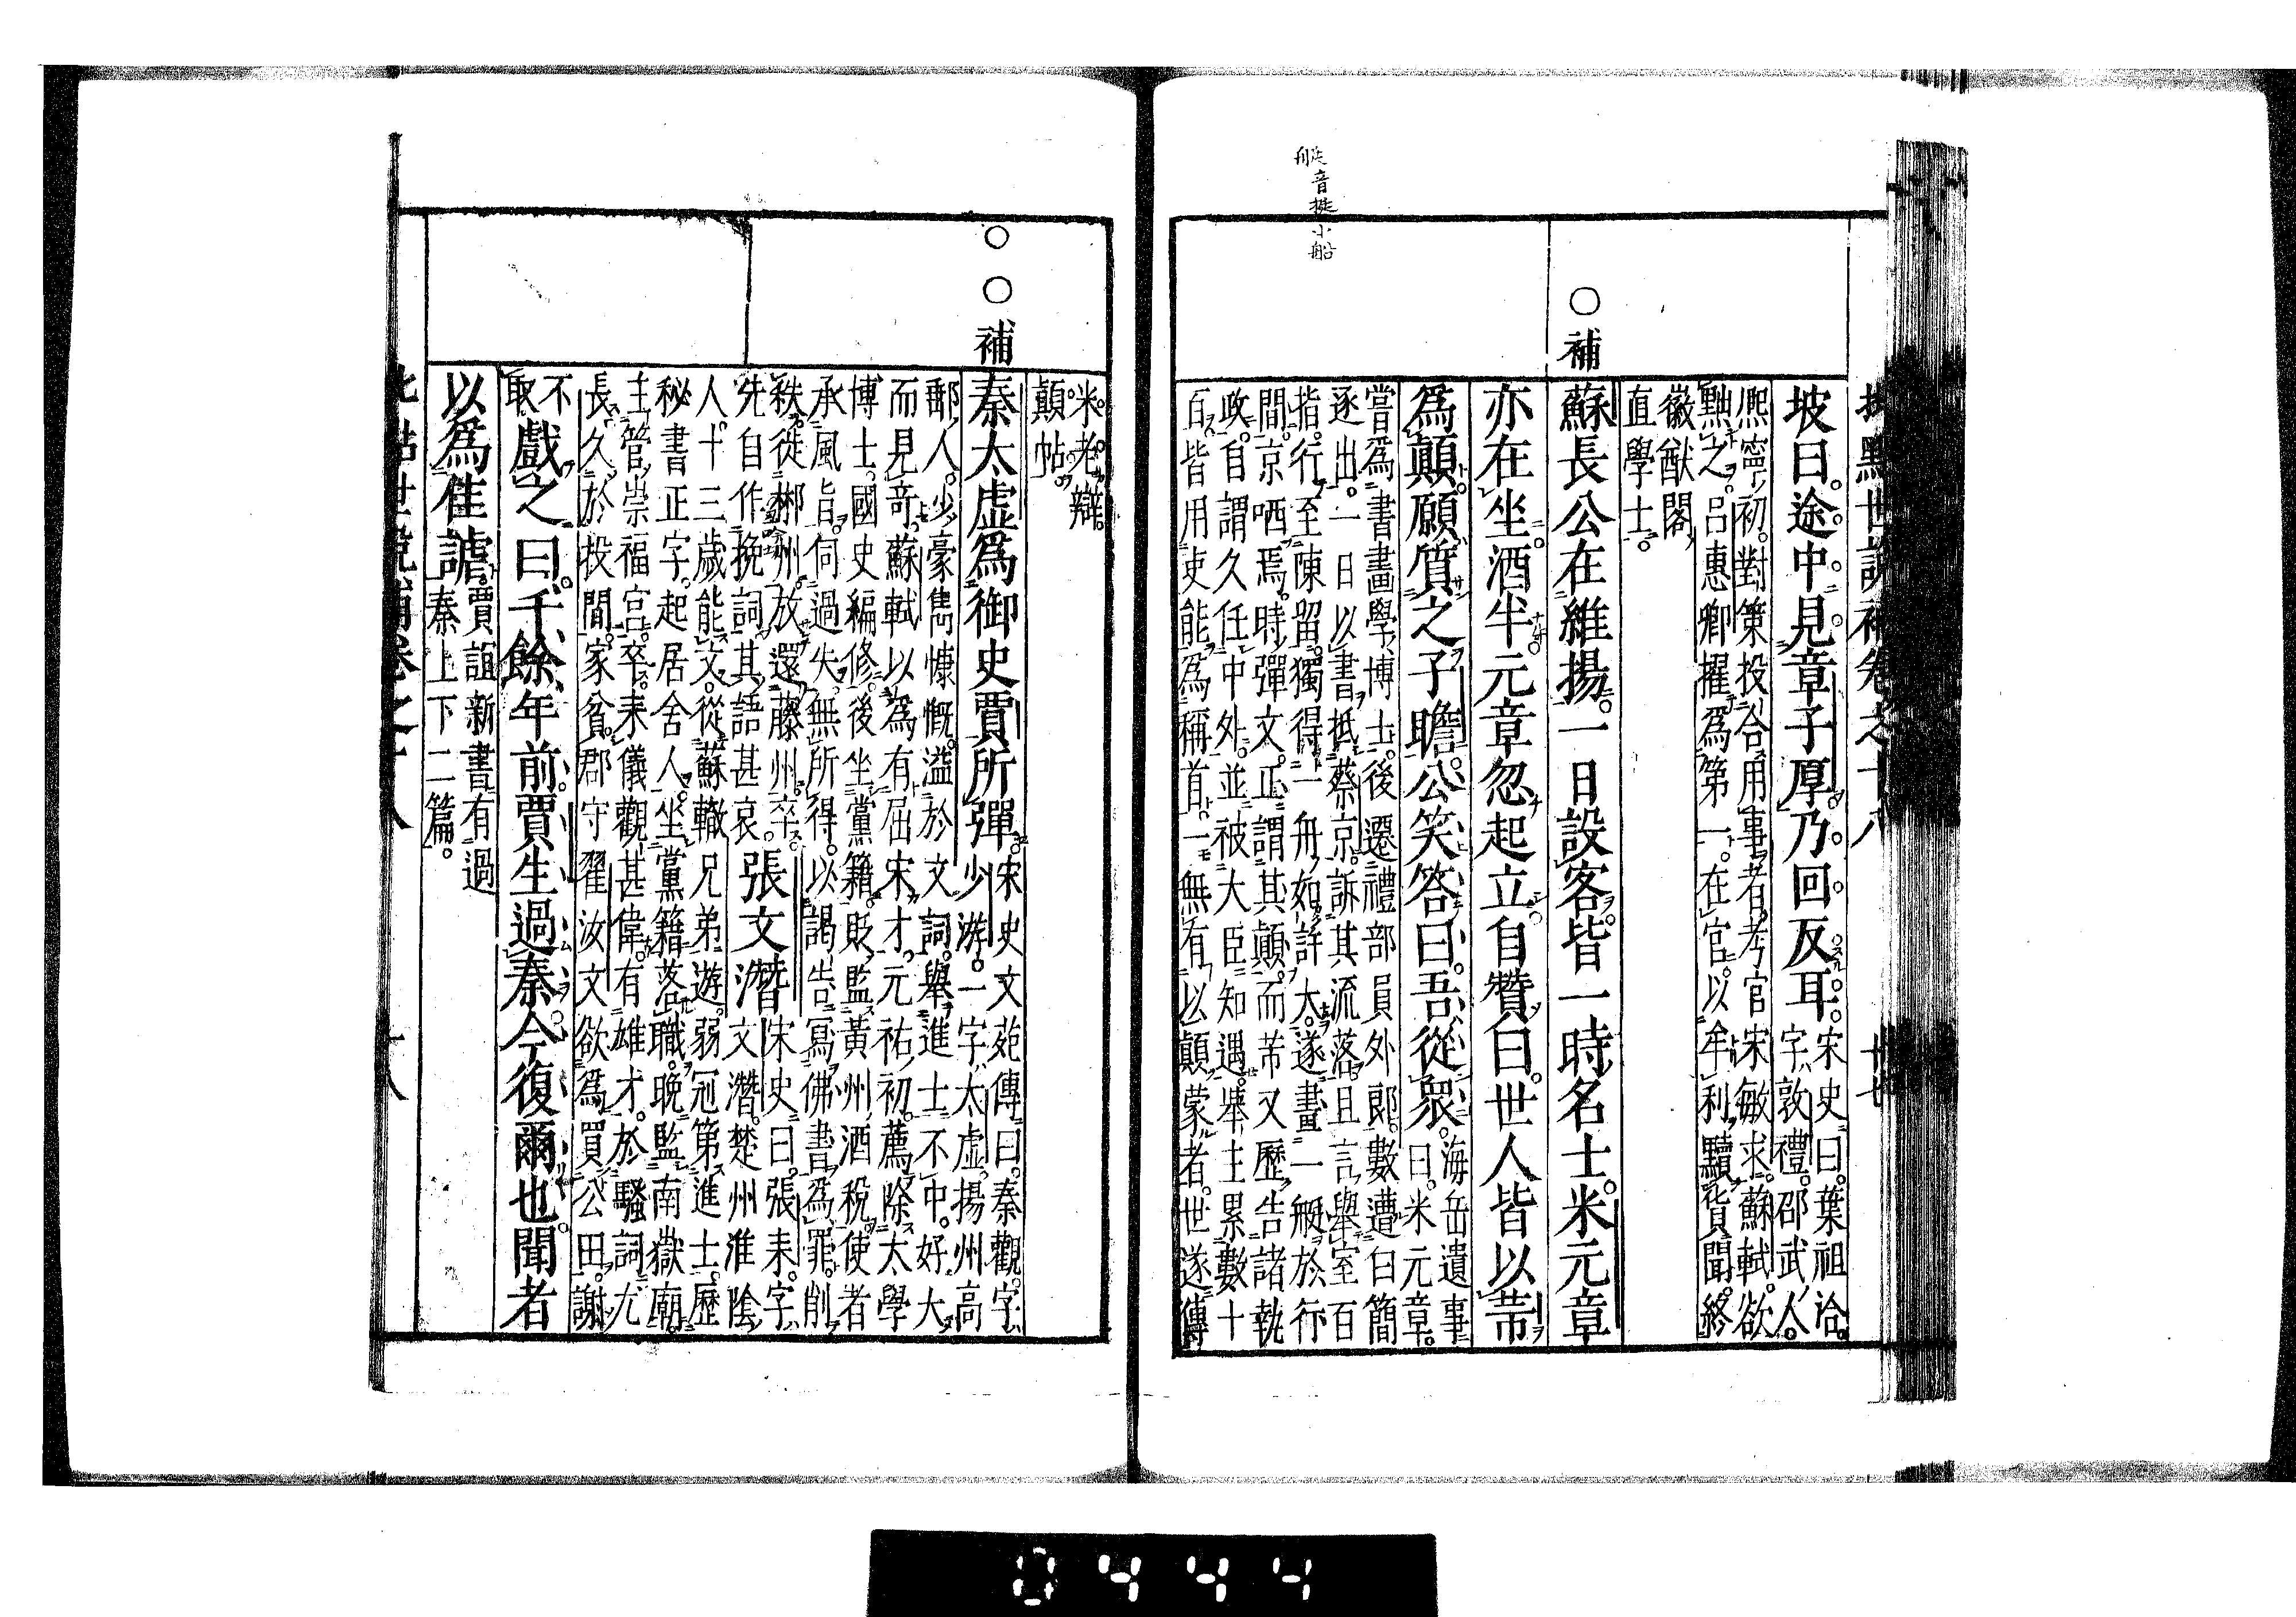 艇音挺小船
坡曰。途中見章子厚乃回反耳。宋史曰。葉祖洽。
字敦禮。邵武人。
熙寧初。對策投合用事者。考官宋敏求。蘇軾。欲
黜之。呂惠卿擢爲第一。在官。以牟利黷貨聞。終
徽猷閣
直學士。
○補
蘇長公在維揚。一日設客。皆一時名士。米元章
亦在坐。酒半元章忽起立自贊曰。世人皆以芾
爲顛。願質之子瞻。公笑答曰。吾從衆。海岳遺事
曰。米元章。
嘗爲書畫學博士。後遷禮部員外郎。數遭白簡
逐出。一日以書抵蔡京。訴其流落。且言舉室百
指。行至陳留。獨得一舟。如許大。遂畫一艇於行
間。京哂焉。時彈文。正謂其顛。而芾又歷告諸執
政。自謂久任中外。並被大臣知遇。舉主累數十
百。皆用吏能爲稱首。一無有以顛蒙者。世遂傳
米老辯
顛帖。
○○補
秦太虛爲御史賈所彈。宋史文苑傳曰。秦觀。字
少游。一字太虛。揚州高
郵人。少豪雋慷慨。溢於文詞。舉進士不中。好大
而見奇。蘇軾以爲有屈宋才。元祐初。薦除太學
博士。國史編修。後坐黨籍。貶監黃州酒稅。使者
承風旨。伺過失。無所得。以謁告寫佛書爲罪。削
秩徙郴州。放還藤州。卒。
先自作挽詞。其語甚哀。張文潛宋史曰。張耒。字
文潛。楚州淮陰
人。十三歲能文。從蘇轍兄弟遊。弱冠第進士。歷
秘書正字。起居舍人。坐黨籍落職。晚監南嶽廟。
主管崇福宮。卒。耒儀觀甚偉。有雄才。於騷詞尤
長。久於投閒。家貧。郡守翟汝文欲爲買公田。謝
不
取。戲之曰。千餘年前賈生過秦。今復爾也。聞者
以爲佳謔。賈誼新書有過
秦上下二篇。